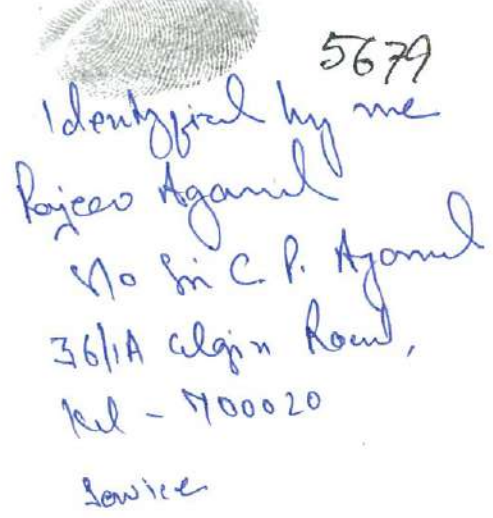 5679
Identified by me
Rajeev Agarwal
S/o Sri C. P. Agarwal
36/1A Elgin Road,
Kol - 700020
Service